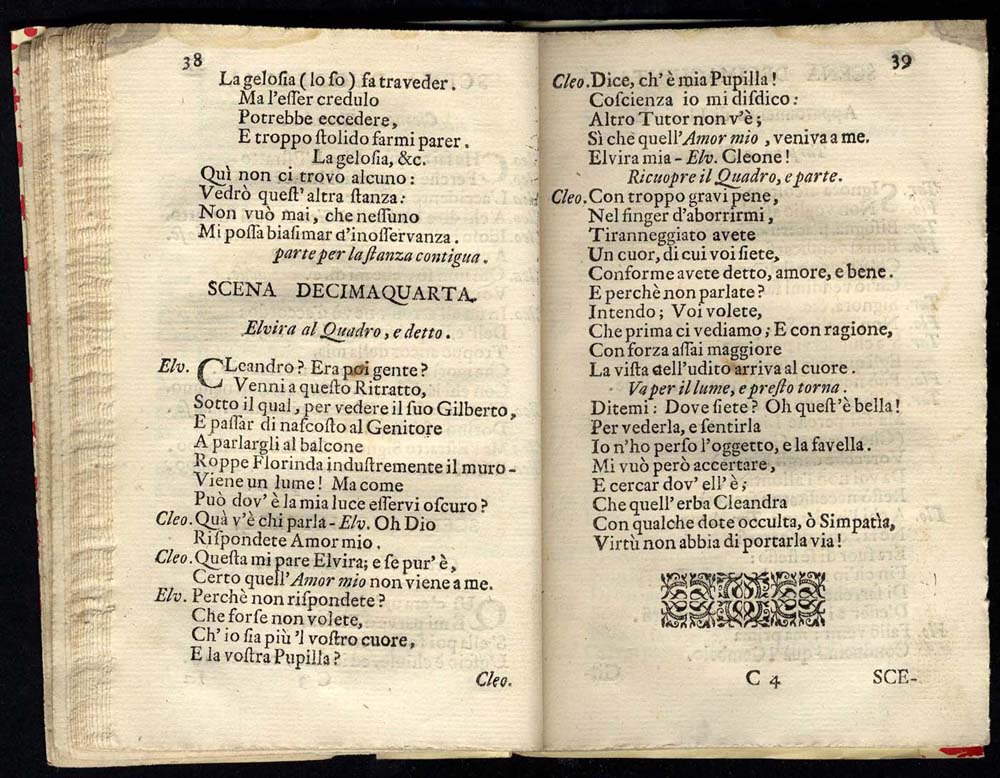 38
La gelosia (lo so) fa traveder.
Ma l'esser credulo
Potrebbe eccedere,
E troppo stolido farmi parer.
La gelosia, &c.
Quì non ci trovo alcuno:
Vedrò quest' altra stanza:
Non vuó mai, che nessuno
Mi possa biasimar d'inosservanza.
parte per la stanza contigua.
SCENA DECIMAQUARTA.
Elvira al Quadro, e detto.
Elv. CLeandro? Era poi gente?
Venni a questo Ritratto,
Sotto il qual, per vedere il suo Gilberto,
E passar di nascosto al Genitore
A parlargli al balcone
Roppe Florinda industremente il muro-
Viene un lume! Ma come
Può dov' è la mia luce esservi oscuro?
Cleo. Quà v'è chi parla- Elv. Oh Dio
Rispondete Amor mio.
Cleo. Questa mi pare Elvira; e se pur' è,
Certo quell' Amor mio non viene a me.
Elv. Perchè non rispondete?
Che forse non volete,
Ch' io sia più 'l vostro cuore,
E la vostra Pupilla?
Cleo.
39
Cleo. Dice, ch' è mia Pupilla!
Coscienza io mi disdico:
Altro Tutor non v'è;
Sì che quell' Amor mio, veniva a me.
Elvira mia - Elv. Cleone!
Ricuopre il Quadro, e parte.
Cleo. Con troppo gravi pene,
Nel finger d'aborrirmi,
Tiranneggiato avete
Un cuor, di cui voi siete,
Conforme avete detto, amore, e bene.
E perchè non parlate?
Intendo; Voi volete,
Che prima ci vediamo; E con ragione,
Con forza assai maggiore
La vista dell'udito arriva al cuore.
Va per il lume, e presto torna.
Ditemi: Dove siete? Oh quest'è bella!
Per vederla, e sentirla
Io n'ho perso l'oggetto, e la favella.
Mi vuò però accertare,
E cercar dov' ell' è;
Che quell' erba Cleandra
Con qualche dote occulta, ò Simpatìa,
Virtù non abbia di portarla via!
C 4
SCE-